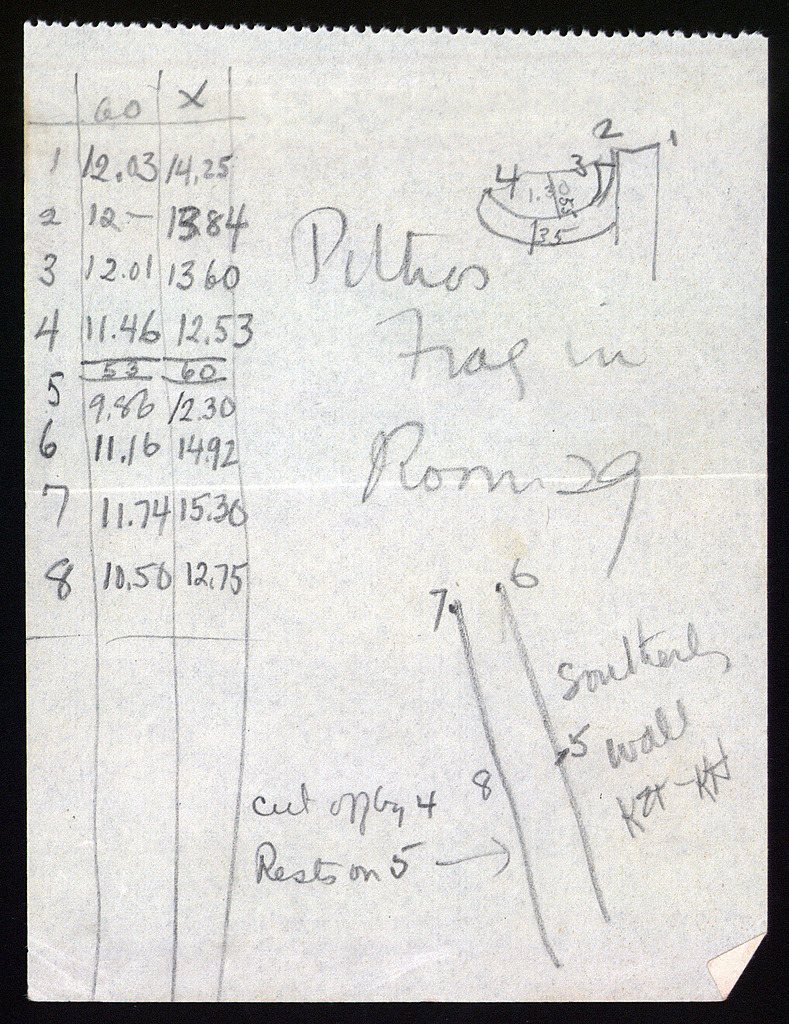 60 X
1 12.03 14.25
2 12 — 13.84
3 12.01 13 60
4 11.46 12.53
53 60
5 9.86 12.30
6 11.16 14.92
7 11.74 15.30
8 10.50 12.75
2 1
4 3
1.3 0.53
1.35
Pithos
Frag in
Room 29
7 6
Southerly
5 wall
8
cut off by 4
Rests on 5 →